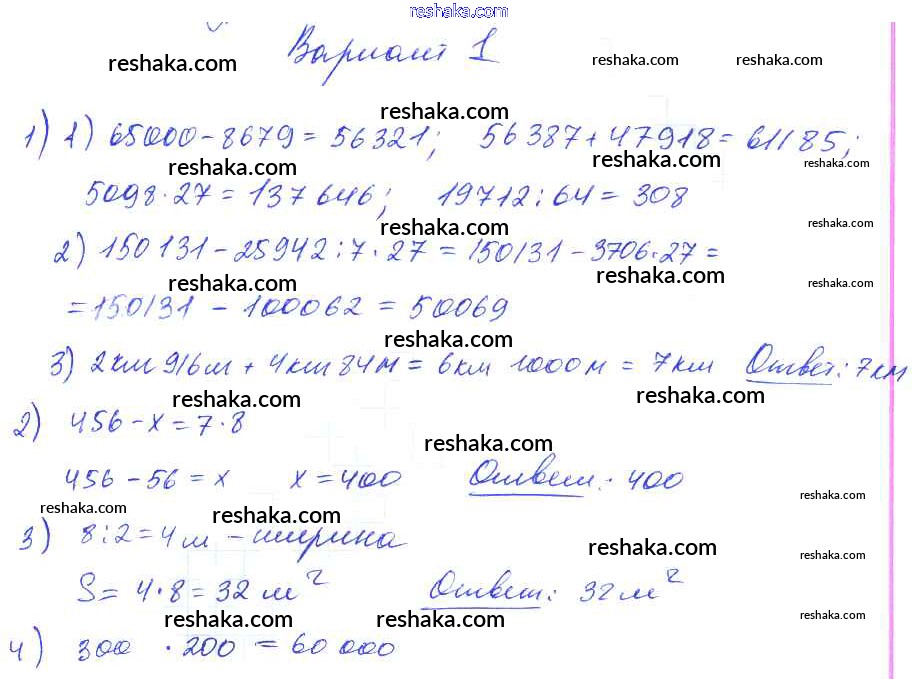 reshaka.com
Вариант 1
reshaka.com reshaka.com reshaka.com
reshaka.com
1) 1) 65000-8679=56321; 56387+47918=61185;
reshaka.com reshaka.com reshaka.com
5098·27=137646; 19712:64=308
reshaka.com reshaka.com
2) 150131-25942:7·27=150131-3706·27=
reshaka.com reshaka.com reshaka.com
=150131-100062=50069
reshaka.com
3) 2км 916м + 4км 84м = 6км 1000м = 7км Ответ: 7км
reshaka.com reshaka.com
2) 456-x=7·8
reshaka.com
456-56=x x=400 Ответ: 400
reshaka.com reshaka.com reshaka.com
3) 8:2=4м - ширина
reshaka.com reshaka.com
S=4·8=32м² Ответ: 32м²
reshaka.com reshaka.com reshaka.com
4) 300 ·200=60000